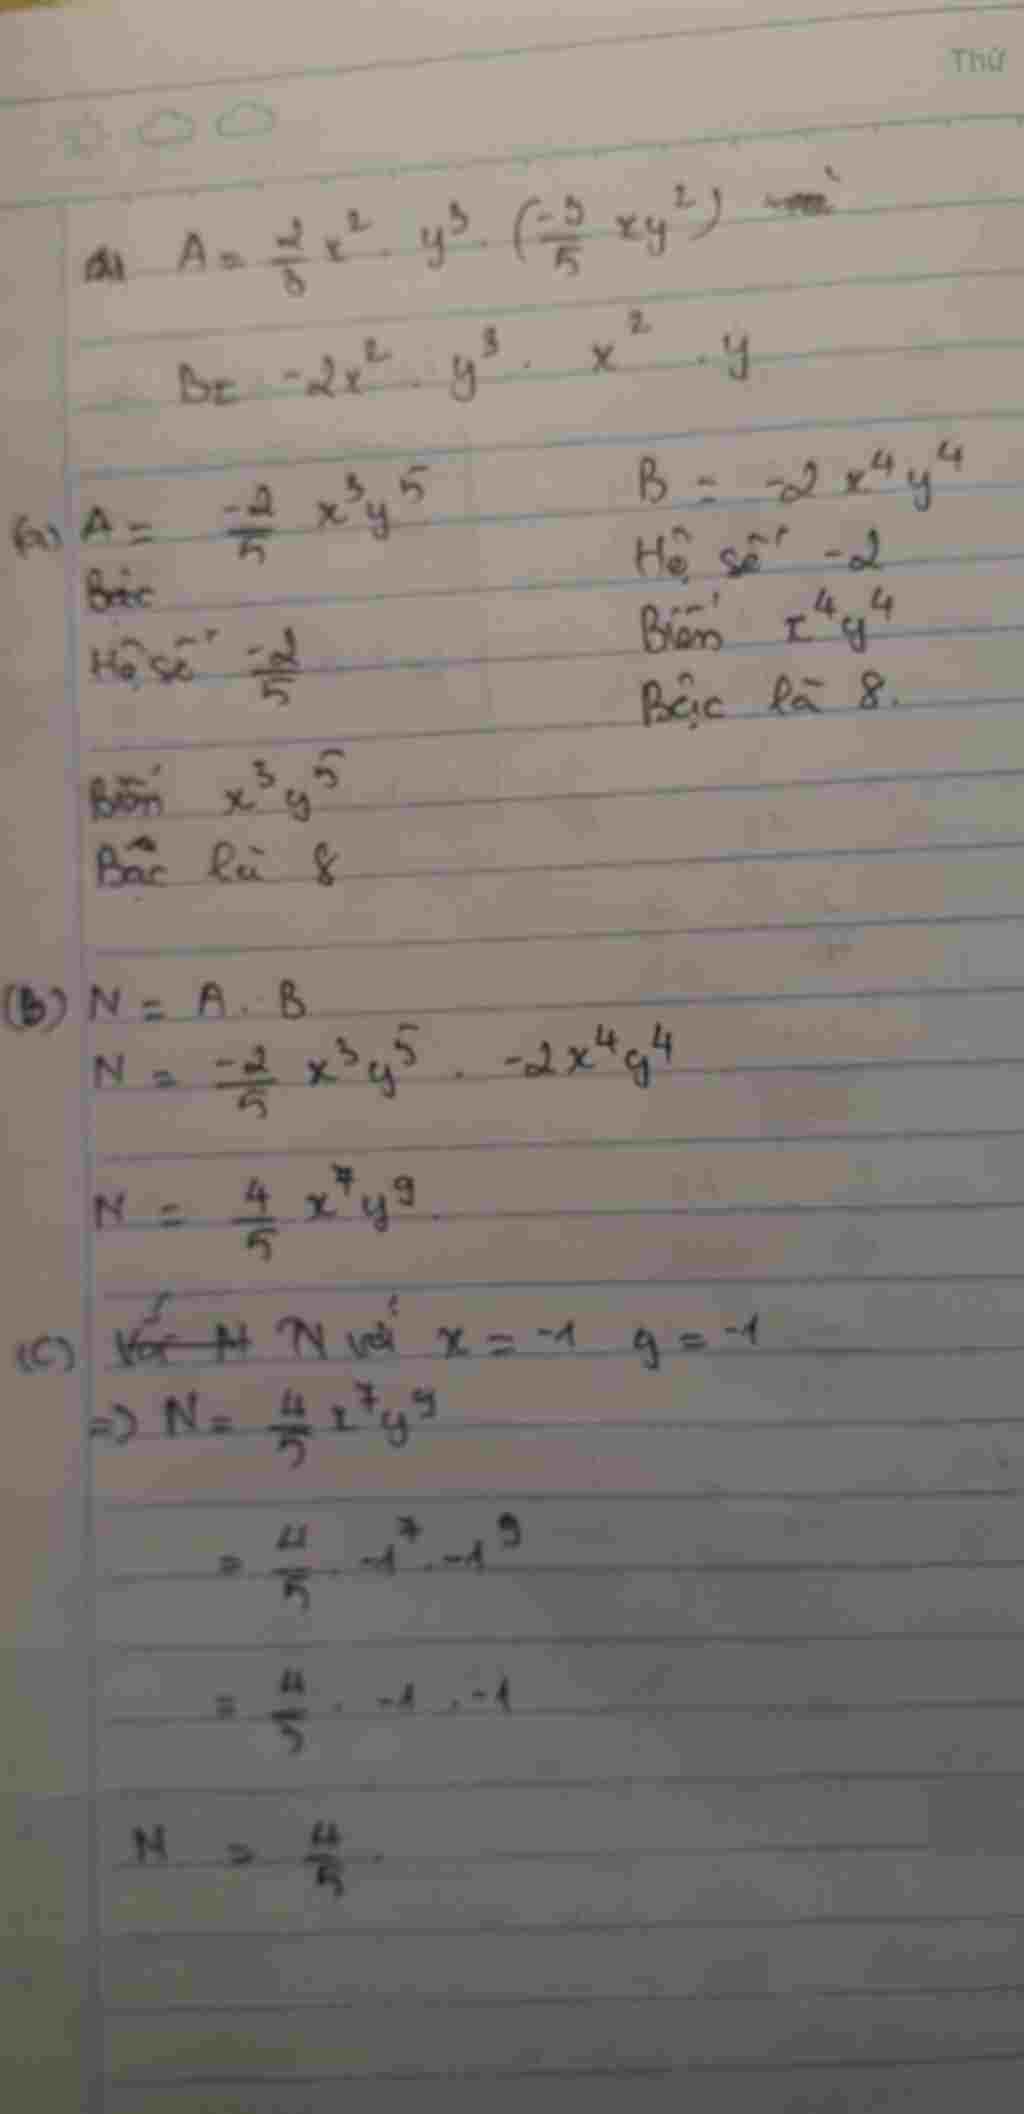 Thứ
A = 2/3 x² . y³ . (-3/5 xy²)
B = -2x² . y³ . x² . y
(a) A = -2/5 x³y⁵
Bậc
Hệ số -2/5
Biến x³y⁵
Bậc là 8
B = -2 x⁴y⁴
Hệ số -2
Biến x⁴y⁴
Bậc là 8.
(B) N = A . B
N = -2/5 x³y⁵ . -2x⁴y⁴
N = 4/5 x⁷y⁹.
(C) N với x = -1 y = -1
=> N = 4/5 x⁷y⁹
= 4/5 . -1⁷ . -1⁹
= 4/5 . -1 . -1
N = 4/5 .